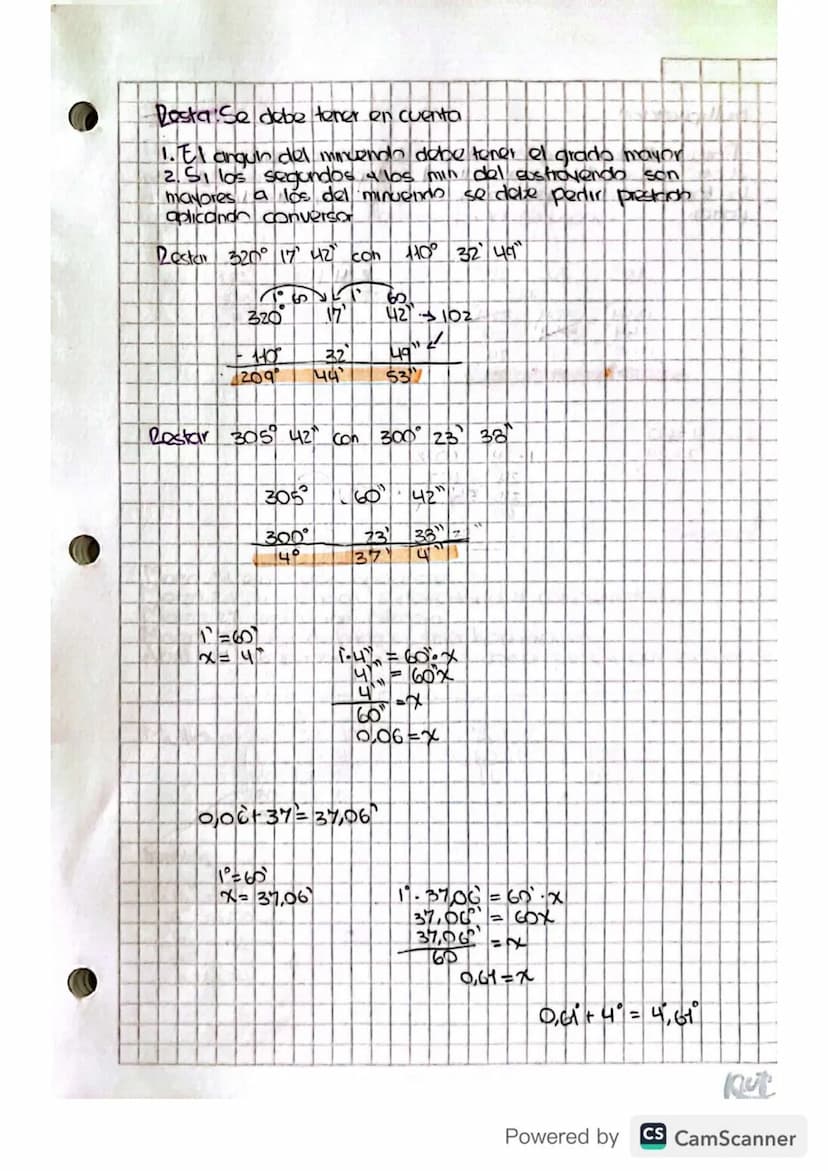 Resta: Se debe tener en cuenta
1. El angun del minuendo debe tener el grado mayor
2. Si los segundos y los min del sustrayendo son
mayores a los del minuendo se debe pedir prestado
aplicando conversor
Restar 320° 17' 42" con 110° 32' 49"
1° 60 1' 60
320° 17' 42" → 102
- 110° 32' 49"
209° 44' 53"
Restar 305° 42" con 300° 23' 38"
305° 60' 42"
300° 23' 38"
4° 37' 4"
1' = 60"
x = 4"
1'·4" = 60"·x
4'" = 60"x
4'" = x
60"
0,06 = x
0,06' + 37' = 37,06'
1° = 60'
x = 37,06'
1°·37,06' = 60'·x
37,06°' = 60x
37,06°' = x
60
0,61 = x
0,61° + 4° = 4,61°
Powered by CS CamScanner